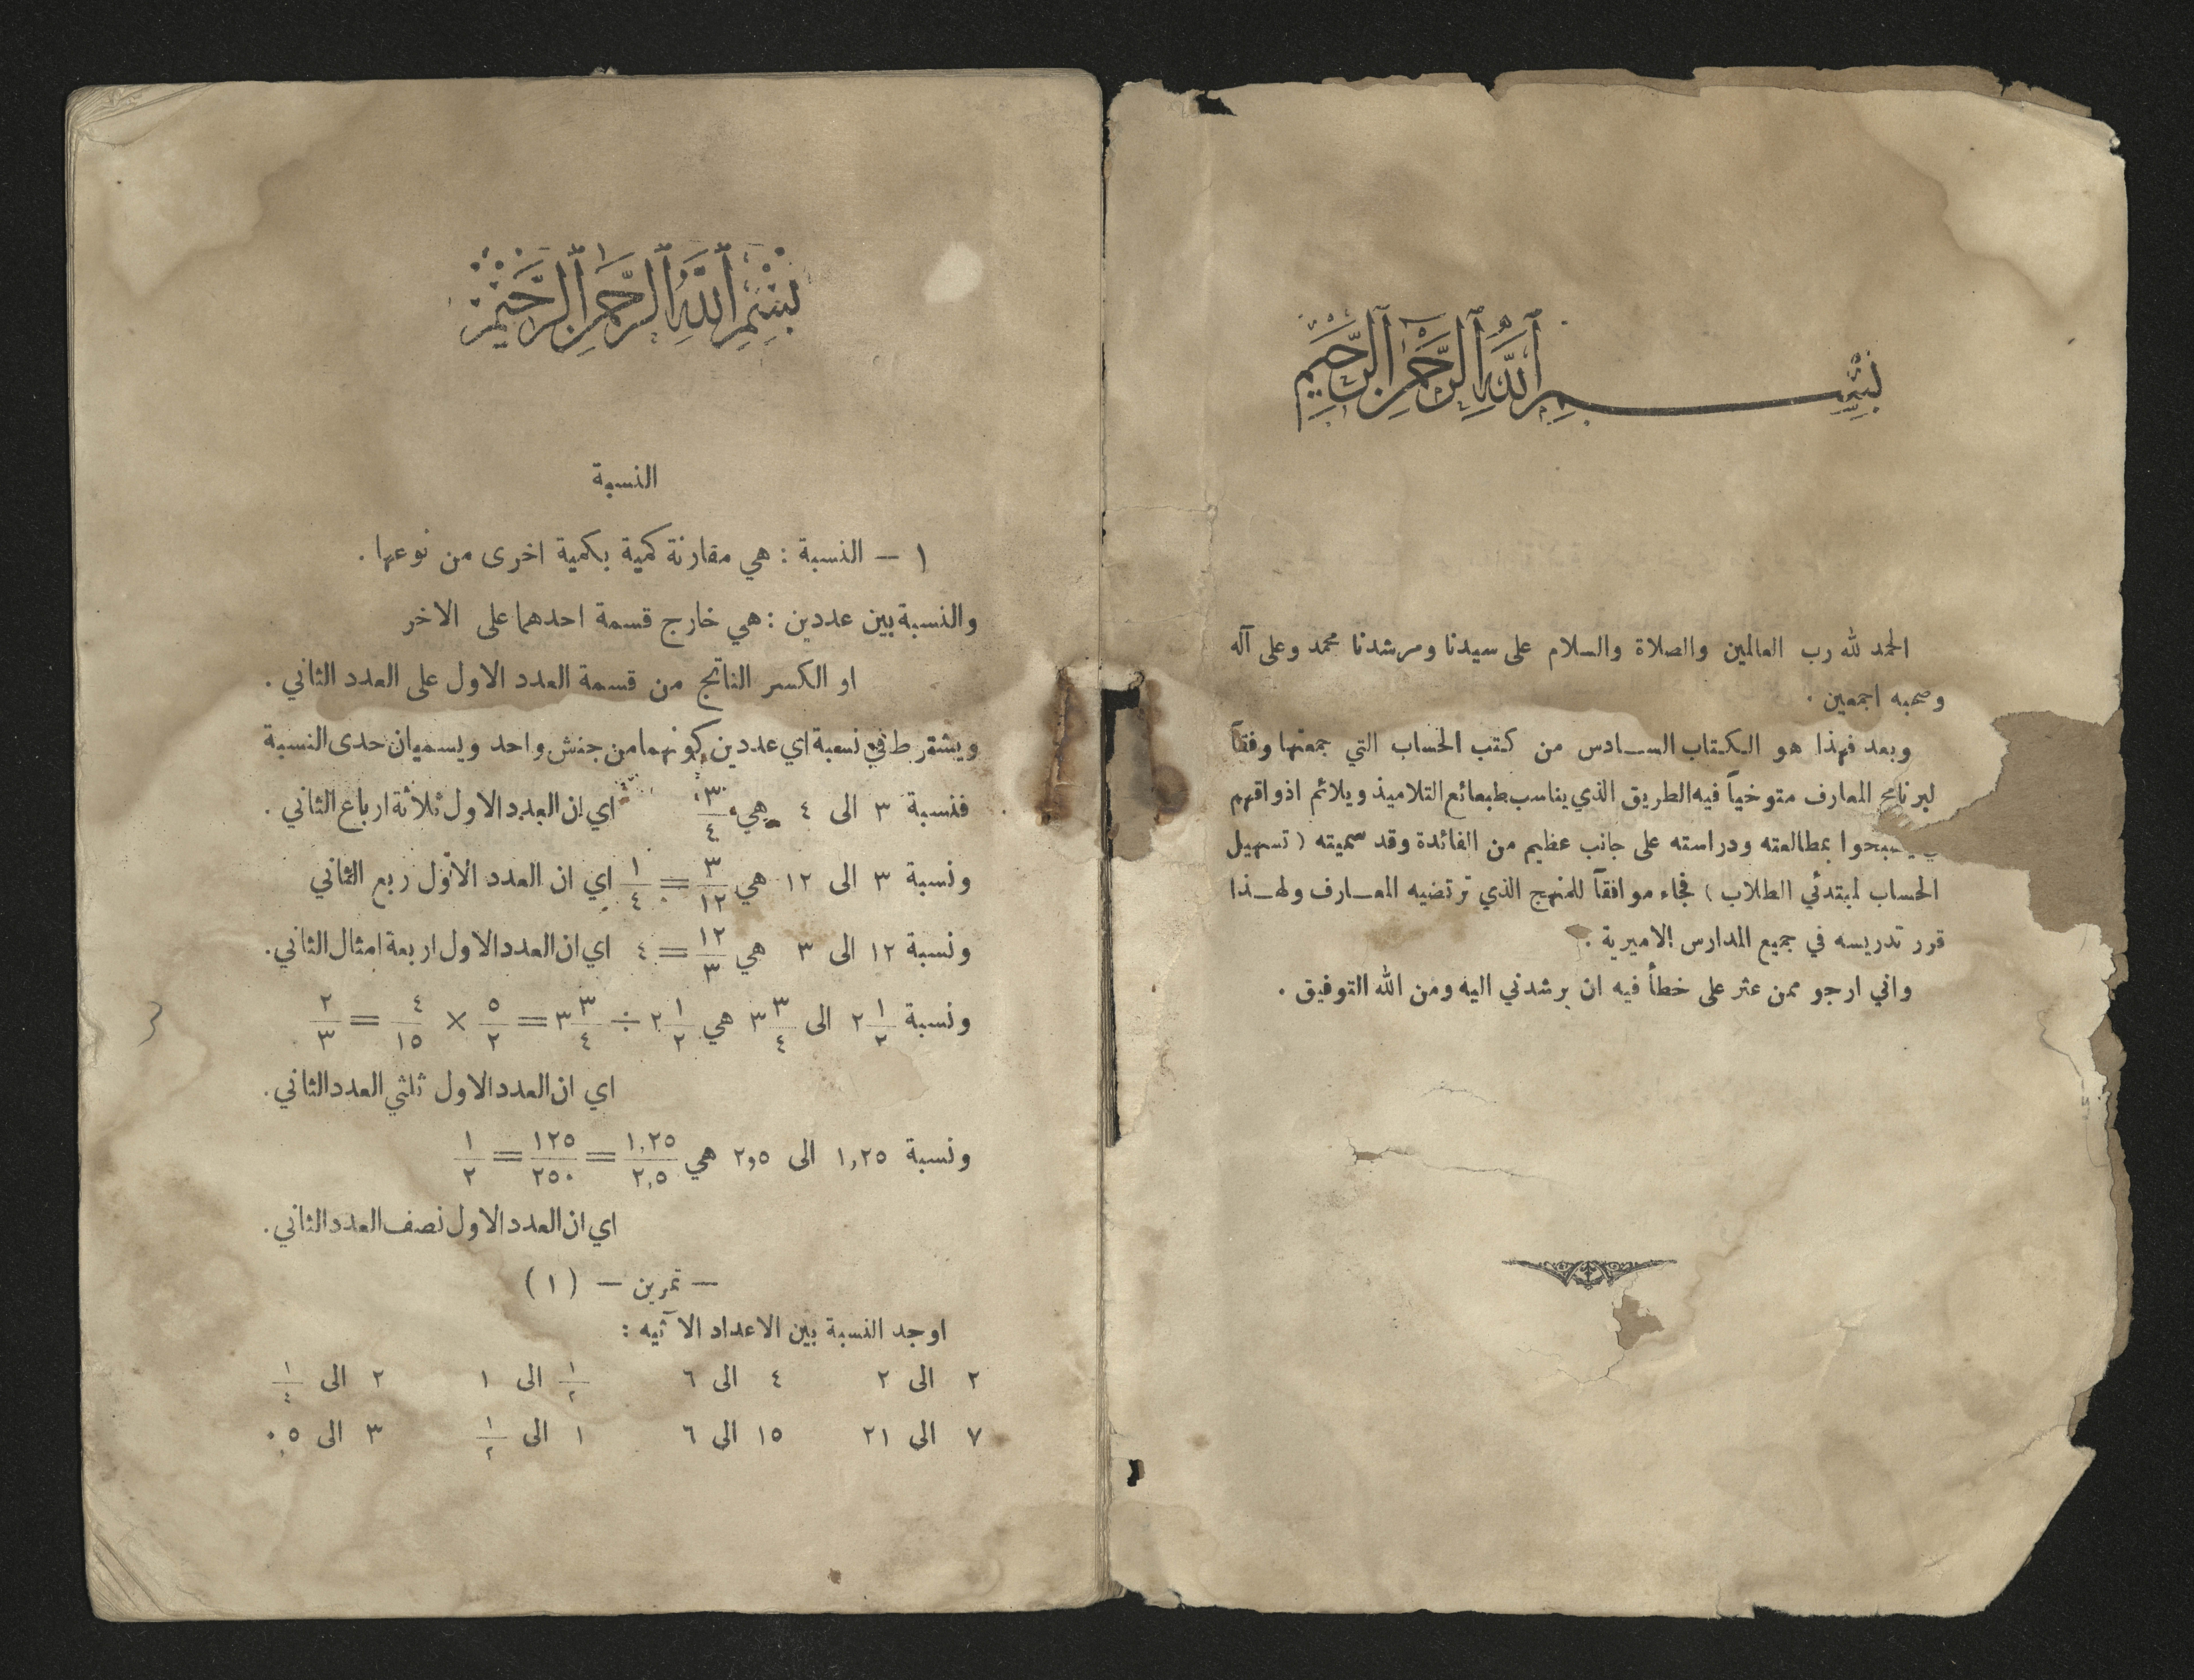 بسم الله الرحمن الرحيم
الحمد لله رب العالمين والصلاة والسلام على سيدنا ومرشدنا محمد وعلى آله
وصحبه اجمعين .
وبعد فهذا هو الكتاب السادس من كتب الحساب التي جمعتها وفقاً
لبرنامج المعارف متوخياً فيه الطريق الذي يناسب طبعائع التلاميذ ويلائم اذواقهم
بمطالعته ودراسته على جانب عظيم من الفائدة وقد سميته ( تسهيل
الحساب لمبتدئي الطلاب ) فجاء موافقاً للمنهج الذي ترتضيه المعارف ولهذا
قرر تدريسه في جميع المدارس الاميرية .
واني ارجو ممن عثر على خطأ فيه ان يرشدني اليه ومن الله التوفيق .
بسم الله الرحمن الرحيم
النسبة
١ — النسبة : هي مقارنة كمية بكمية اخرى من نوعها .
والنسبة بين عددين : هي خارج قسمة احدهما على الاخر
او الكسر الناتج من قسمة العدد الاول على العدد الثاني .
ويشترط في نسبة اي عددين كونهما من جنس واحد ويسميان حدى النسبة
فنسبة ٣ الى ٤ هي ٣/٤ اي ان العدد الاول ثلاثة ارباع الثاني .
ونسبة ٣ الى ١٢ هي ٣/١٢ = ١/٤ اي ان العدد الاول ربع الثاني
ونسبة ١٢ الى ٣ هي ١٢/٣ = ٤ اي ان العدد الاول اربعة امثال الثاني .
ونسبة ٢ ١/٢ الى ٣ ٣/٤ هي ٢ ١/٢ ÷ ٣ ٣/٤ = ٥/٢ × ٤/١٥ = ٢/٣
اي ان العدد الاول ثلثي العدد الثاني .
ونسبة ١,٢٥ الى ٢,٥ هي ١,٢٥/٢,٥ = ١٢٥/٢٥٠ = ١/٢
اي ان العدد الاول نصف العدد الثاني .
— تمرين — ( ١ )
اوجد النسبة بين الاعداد الآتيه :
٢ الى ٢ ٤ الى ٦ ١/٢ الى ١ ٢ الى ١/٤
٧ الى ٢١ ١٥ الى ٦ ١ الى ١/٢ ٣ الى ٠,٥